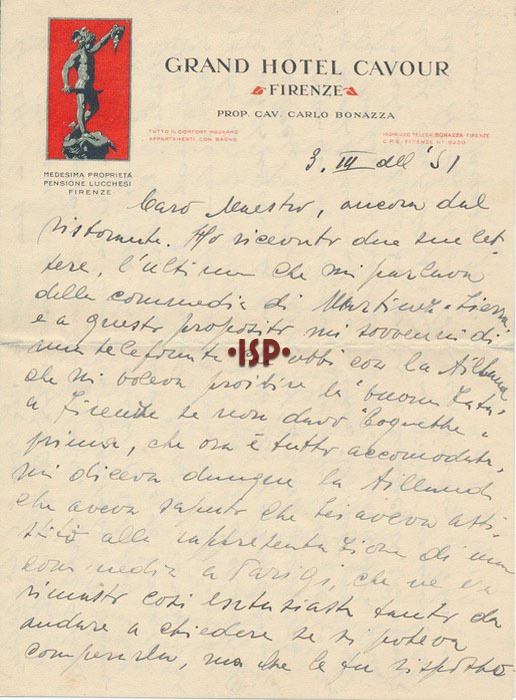 GRAND HOTEL CAVOUR
FIRENZE
PROP. CAV. CARLO BONAZZA
TUTTO IL CONFORT MODERNO
APPARTAMENTI CON BAGNO
INDIRIZZO TELEGR. BONAZZA FIRENZE
C.P.E. FIRENZE Nº 9230
MEDESIMA PROPRIETÀ
PENSIONE LUCCHESI
FIRENZE
3. III dell '51
Caro Maestro, ancora dal
ristorante. Ho ricevuto due sue let
tere, l'ultima che mi parlava
della commedia di Martinez-Sierra,
e a questo proposito mi sovvenni di
una telefonata ebbi con la
·ISP·
che mi voleva proibire la "buona
a Firenze se non davo "Coquette"
prima, che ora è tutto accomodato,
mi diceva dunque la
che aveva saputo che Lei aveva assi
stito alla rappresentazione di una
commedia a Parigi, che ne era
rimasto così entusiasta tanto da
andare a chiedere se si poteva
comperarla, ma che le fu risposto